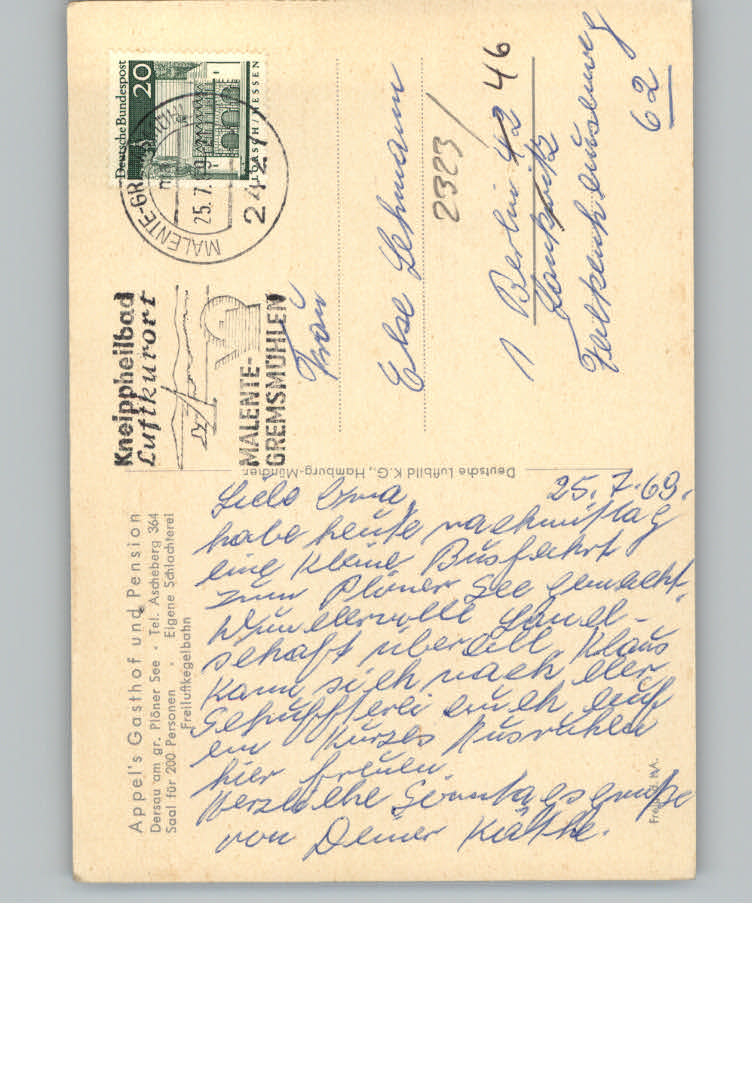 Appel's Gasthof und Pension
Dersau am gr. Plöner See · Tel. Ascheberg 364
Saal für 200 Personen · Eigene Schlachterei
Freiluftkegelbahn
25.7.69.
Liebe Oma,
habe heute nachmittag
eine kleine Busfahrt
zum Plöner See gemacht.
Wundervolle Land-
schaft überall. Klaus
kann sich nach der
Schufterei auch auf
ein kurzes Ausruhen
hier freuen.
Herzliche Sonntagsgrüße
von Deiner Käthe.
Deutsche Luftbild K.G., Hamburg
Kneippheilbad
Luftkurort
MALENTE-
GREMSMÜHLEN
MALENTE-GR
25.7.
2427
Deutsche Bundespost
20
LORSCH/HESSEN
Frau
Else Lehmann
2323/
1 Berlin 42 46
Lankwitz
Falkenhausenweg
62